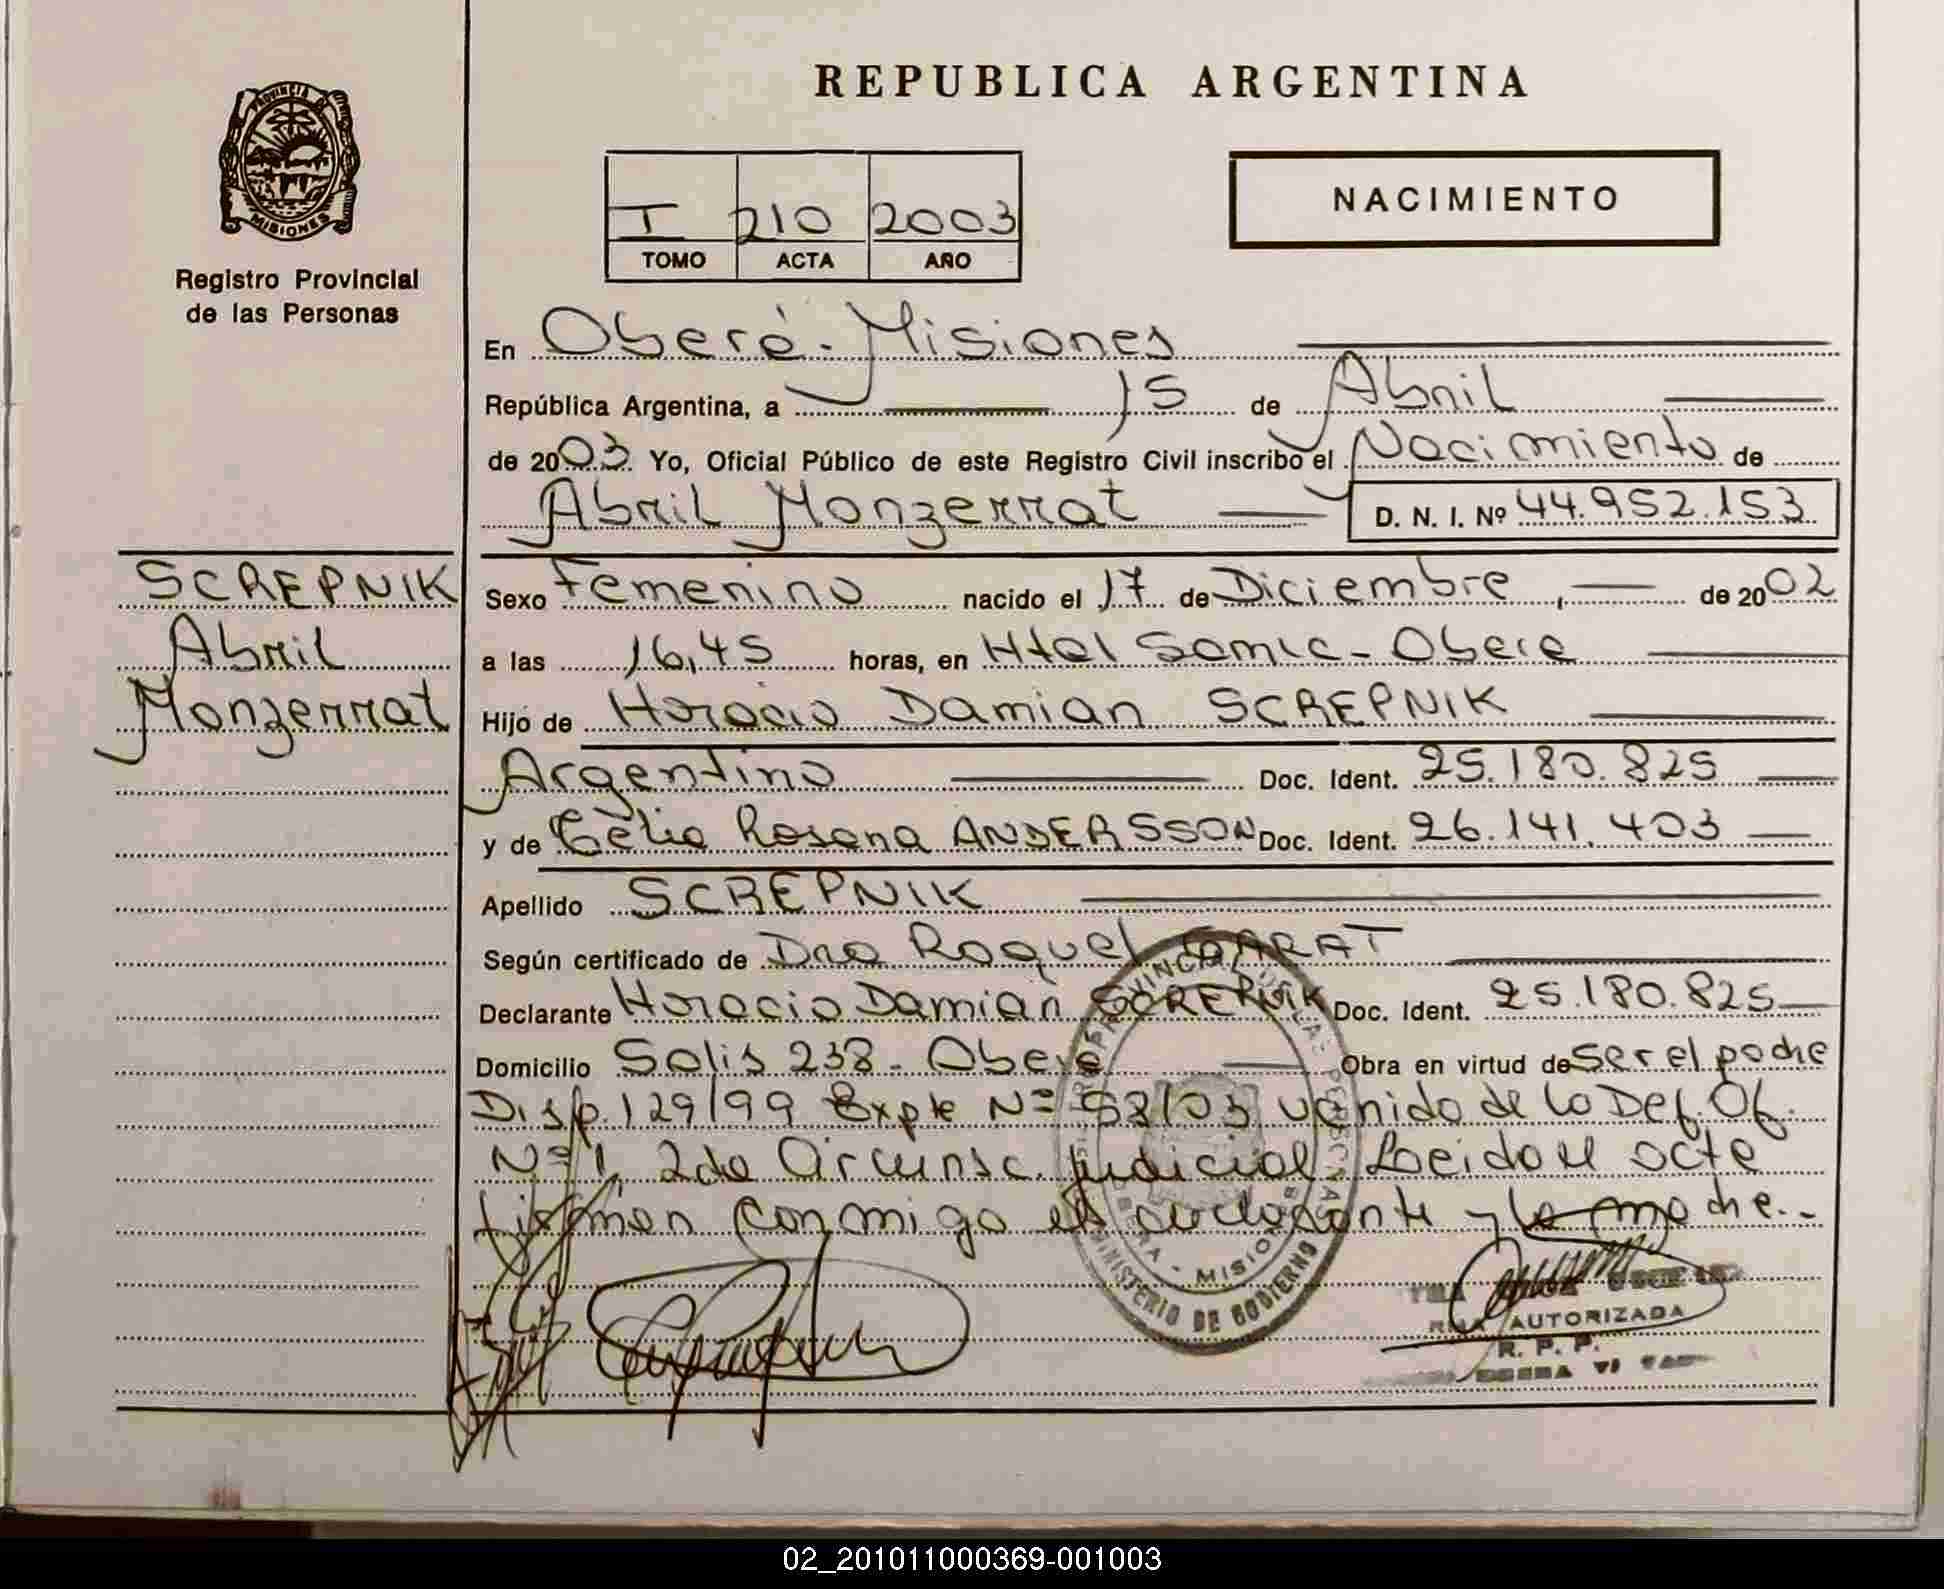 REPUBLICA ARGENTINA
PROVINCIA DE
MISIONES
Registro Provincial
de las Personas
I 210 2003
TOMO ACTA AÑO
NACIMIENTO
En Oberá - Misiones
República Argentina, a 15 de Abril
de 2003 Yo, Oficial Público de este Registro Civil inscribo el Nacimiento de
Abril Monzerrat D. N. I. Nº 44.952.153
SCREPNIK
Abril
Monzerrat
Sexo Femenino nacido el 17 de Diciembre, de 2002
a las 16,45 horas, en Htal Samic - Obera
Hijo de Horacio Damian SCREPNIK
Argentino Doc. Ident. 25.180.825
y de Celia Rosana ANDERSSON Doc. Ident. 26.141.403
Apellido SCREPNIK
Según certificado de Dra Raquel GARAT
Declarante Horacio Damian SCREPNIK Doc. Ident. 25.180.825
Domicilio Solis 238 - Obera Obra en virtud de ser el padre
Disp. 129/99 Expte Nº 58/03 venido de la Def. Of.
Nº 1, 2da Circunsc. Judicial. Leida el acta
firman conmigo el declarante y la madre.-
MISIONES
MINISTERIO DE GOBIERNO
AUTORIZADA
R. P. P.
02_201011000369-001003